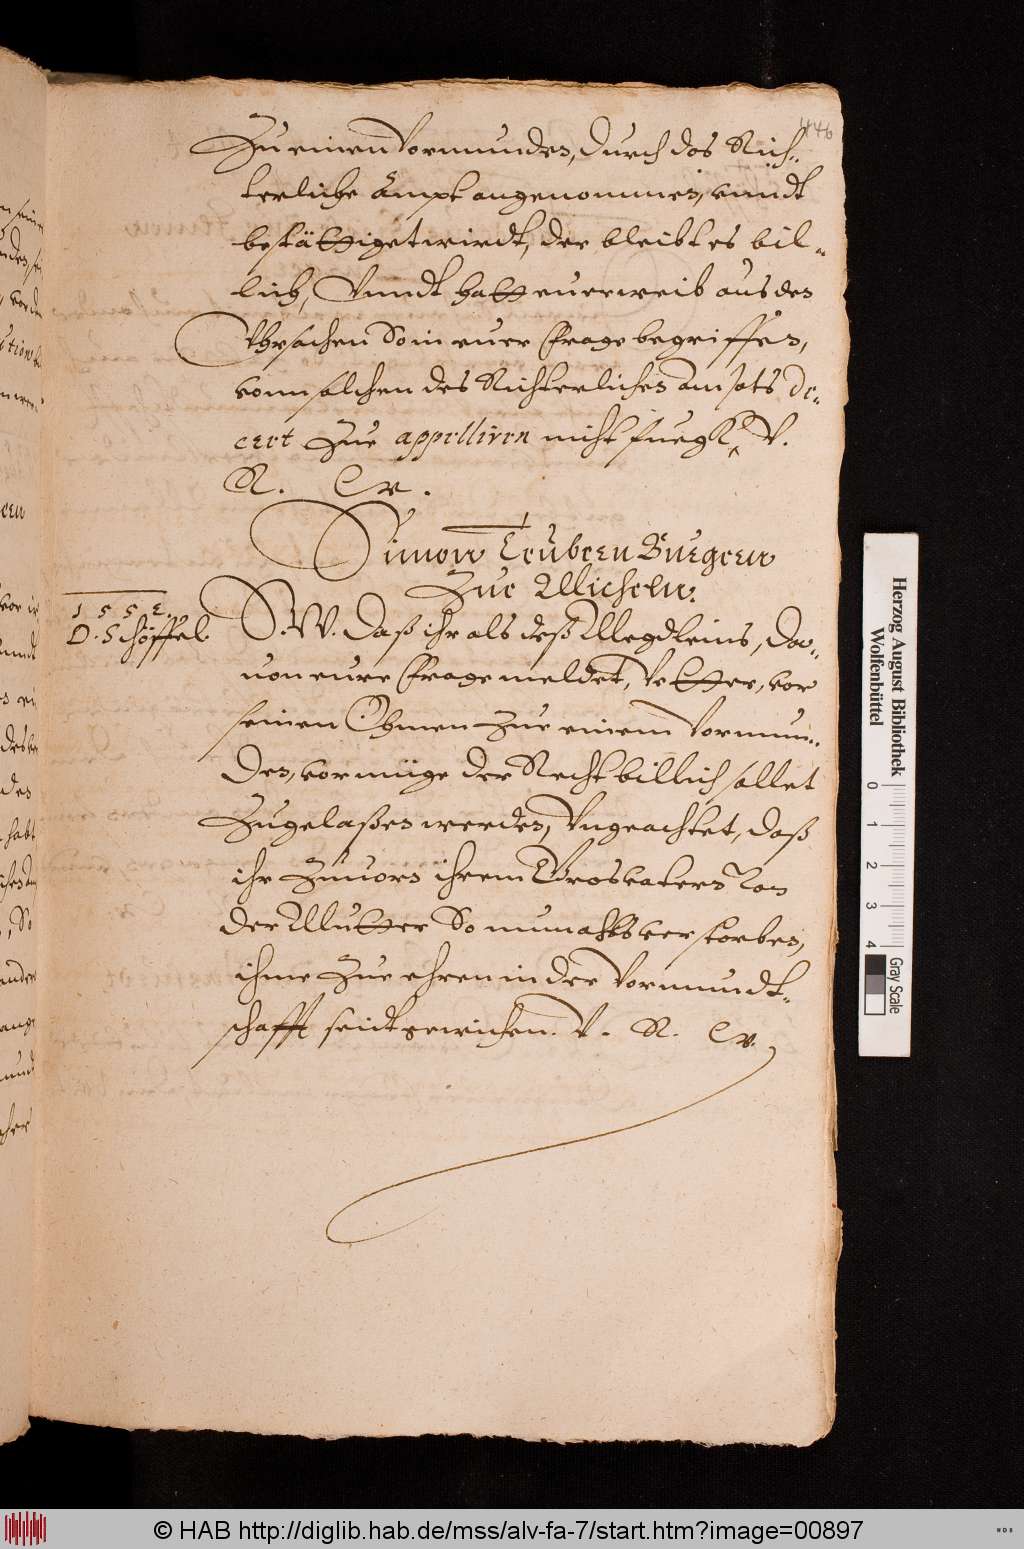 446
Zu einen Vormunden, durch das Rich-
terliche Ampt angenommen, vnndt
bestättiget wirdt, der bleibt es bil-
lich, Vnndt hatt euer weib aus den
Vhrsachen So in euer Frage begriffen,
vonn solchen des Richterlichen Ampts De-
cret zue appelliren nicht fueg V.
R. W.
Simon Teuben Burgern
Zue Micheln.
1552.
D. Schöffel.
S. W. Daß ihr als deß Megdleins, Da-
uon eure Frage meldet, Vetter, vor
seinen Ohmen zue einem Vormun-
den, vormüge der Recht billich sollet
Zugelaßen werden, Vngeachtet, daß
ihr Zuuorn ihrem Grosvatern von
der Mutter So nunmahls verstorben,
ihme zue ehren in der Vormundt-
schafft seidt gewichen. V. R. W.
Herzog August Bibliothek
Wolfenbüttel
0 1 2 3 4
Gray Scale
© HAB http://diglib.hab.de/mss/alv-fa-7/start.htm?image=00897